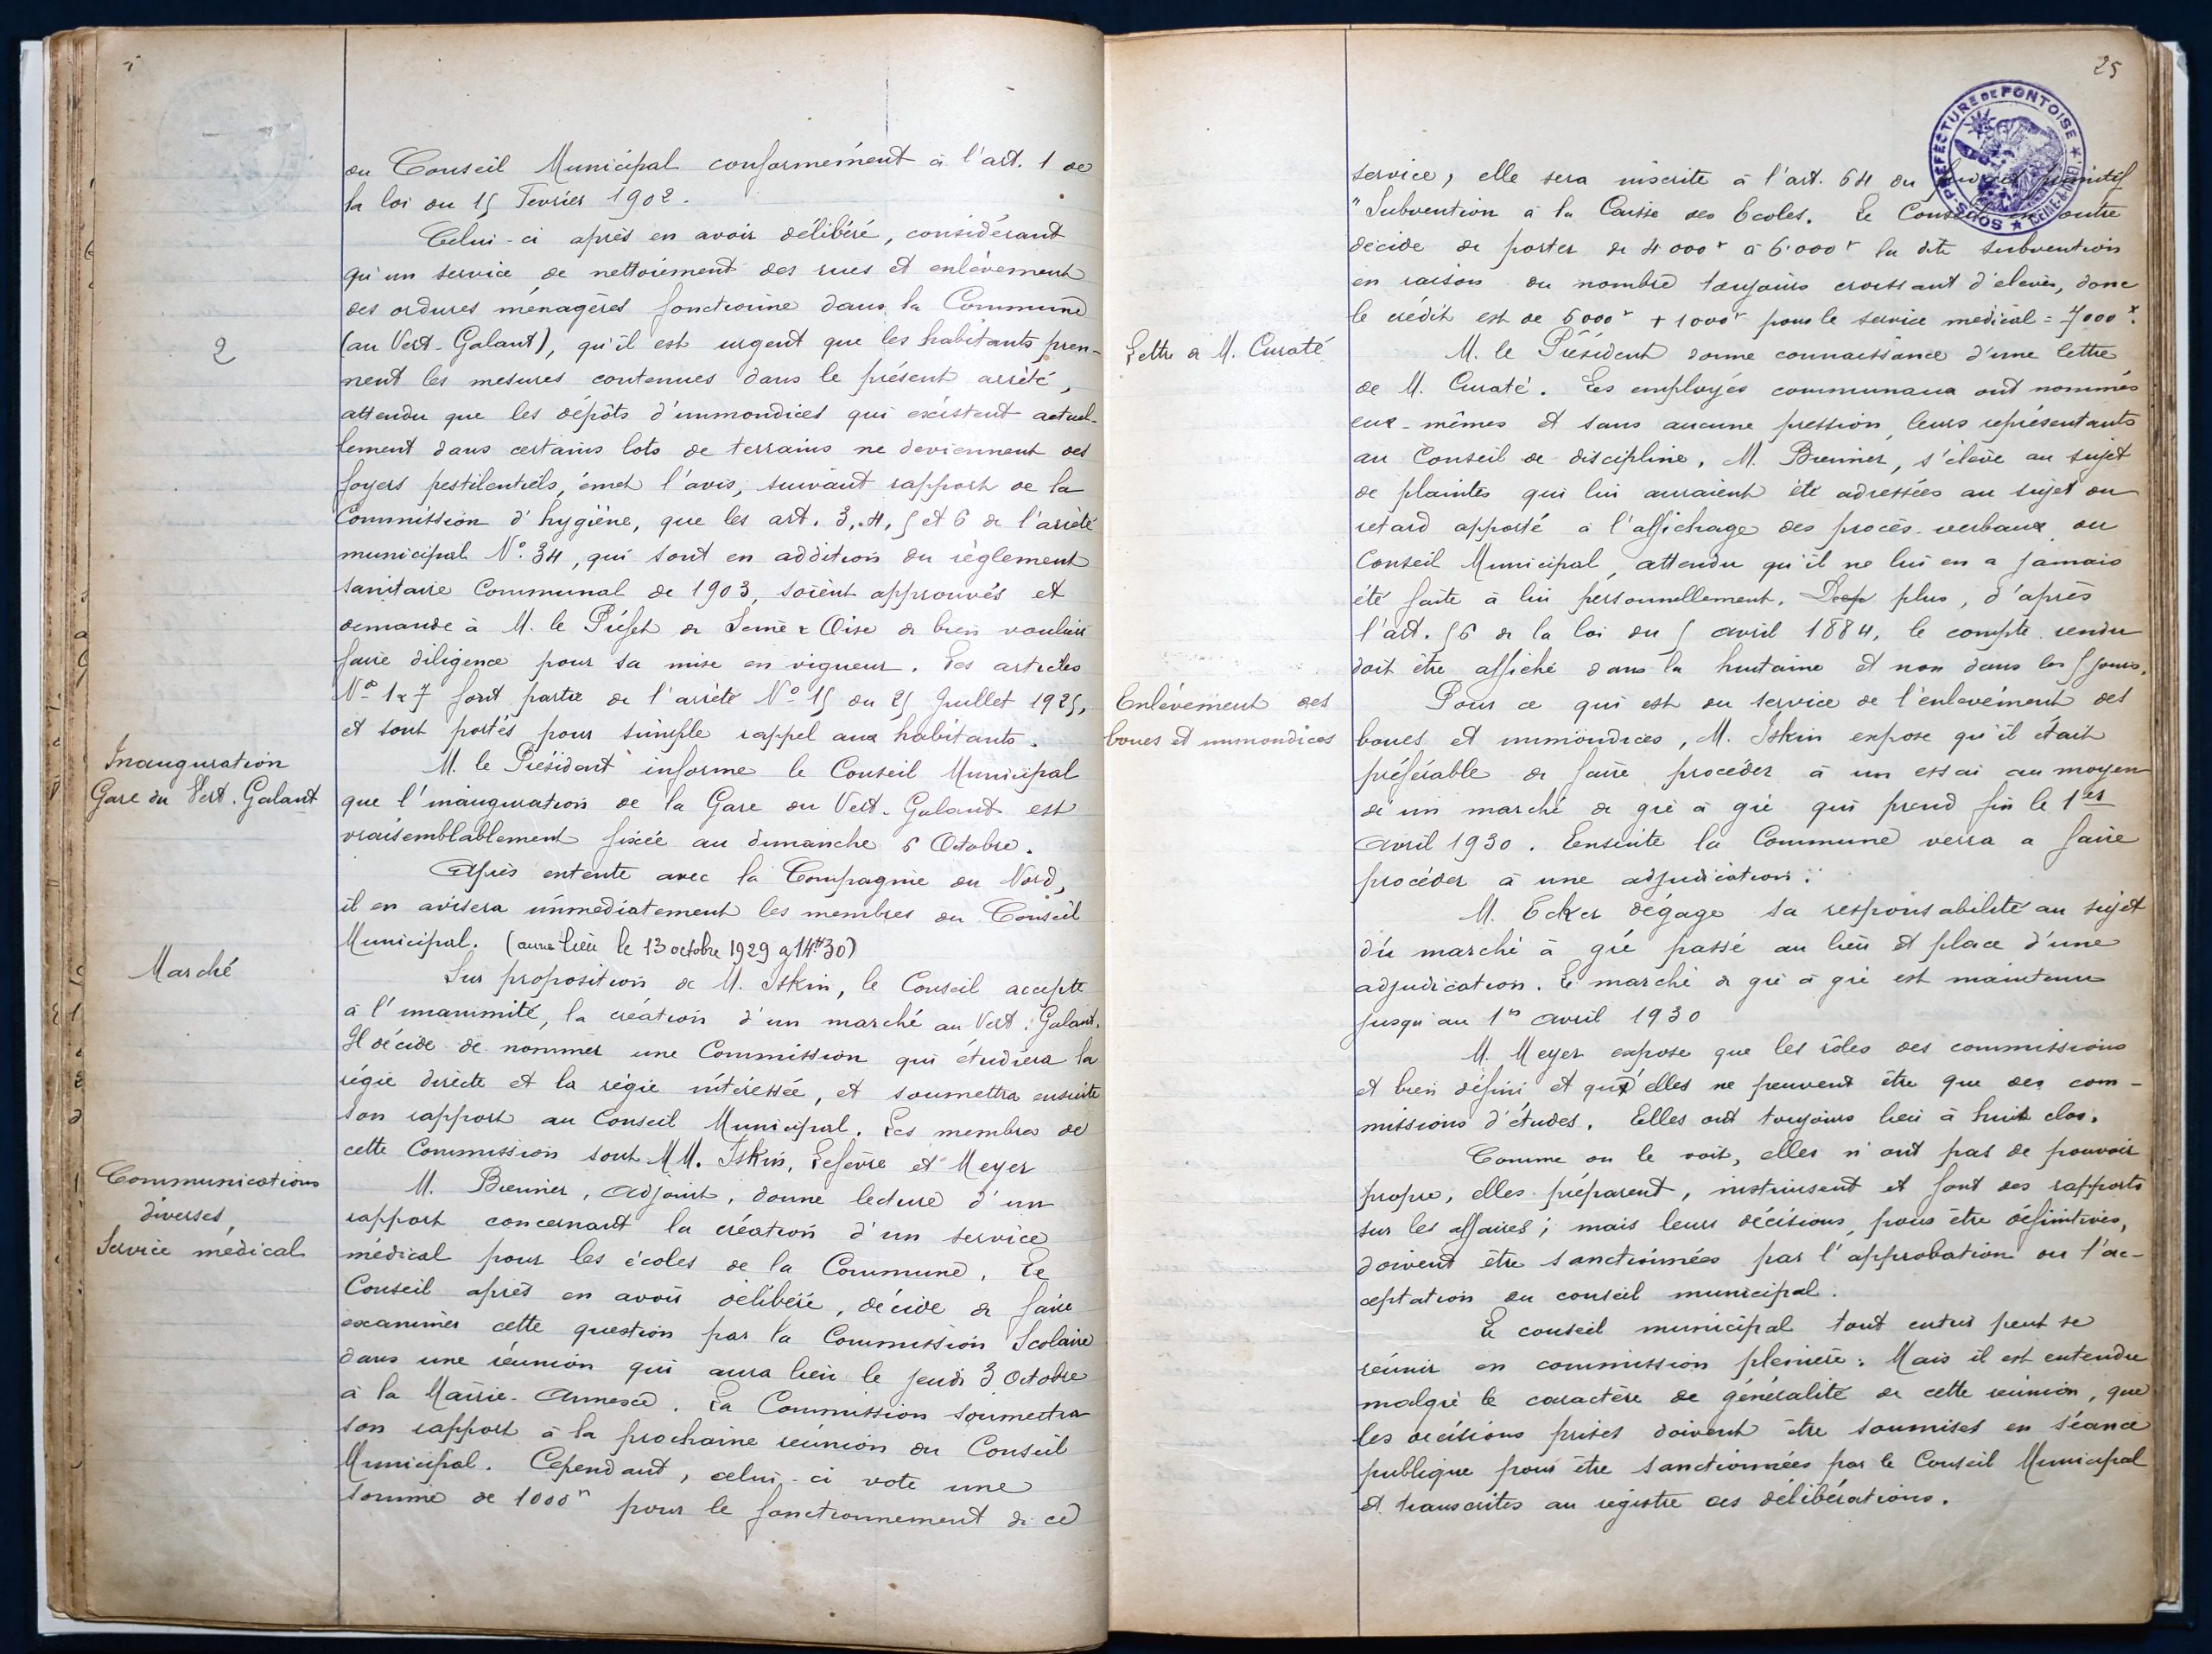 du Conseil Municipal conformément à l'art. 1 de
la loi du 15 Fevrier 1902.
Celui-ci après en avoir délibéré, considérant
qu'un service de nettoiement des rues et enlèvement
des ordures ménagères fonctionne dans la Commune
2
(au Vert-Galant), qu'il est urgent que les habitants pren-
nent les mesures contenues dans le présent arrêté,
attendu que les dépôts d'immondices qui existent actuel-
lement dans certains lots de terrains ne deviennent des
foyers pestilentiels, émet l'avis, suivant rapport de la
Commission d'hygiène, que les art. 3, 4, 5 et 6 de l'arrêté
municipal N°. 34, qui sont en addition du règlement
sanitaire Communal de 1903, soient approuvés et
demande à M. le Préfet de Seine & Oise de bien vouloir
faire diligence pour sa mise en vigueur. Les articles
N° 1 & 7 font partie de l'arrêté N° 15 du 25 Juillet 1925,
et sont portés pour simple rappel aux habitants.
Inauguration
Gare du Vert. Galant
M. le Président informe le Conseil Municipal
que l'inauguration de la Gare du Vert-Galant est
vraisemblablement fixée au dimanche 6 Octobre.
Après entente avec la Compagnie du Nord,
il en avisera immédiatement les membres du Conseil
Municipal. (aura lieu le 13 octobre 1929 à 14H30)
Marché
Sur proposition de M. Iskin, le Conseil accepte
à l'unanimité, la création d'un marché au Vert. Galant.
Il décide de nommer une Commission qui étudiera la
régie directe et la régie intéressée, et soumettra ensuite
son rapport au Conseil Municipal. Les membres de
cette Commission sont MM. Iskin, Lefèvre et Meyer
Communications
diverses,
Service médical
M. Brenner, Adjoint, donne lecture d'un
rapport concernant la création d'un service
médical pour les écoles de la Commune. Le
Conseil après en avoir délibéré, décide de faire
examiner cette question par la Commission Scolaire
dans une réunion qui aura lieu le jeudi 3 Octobre
à la Mairie-Annexe. La Commission soumettra
son rapport à la prochaine réunion du Conseil
Municipal. Cependant, celui-ci vote une
somme de 1000 fr pour le fonctionnement de ce
25
SOUS-PRÉFECTURE DE PONTOISE
SEINE-&-OISE
service, elle sera inscrite à l'art. 64 du budget primitif
"Subvention à la Caisse des Ecoles. Le Conseil en outre
décide de porter de 4 000 f à 6 000 f la dite subvention
en raison du nombre toujours croissant d'élèves, donc
le crédit est de 6000 f + 1000 f pour le service médical = 7000 f.
Lettre de M. Curaté
M. le Président donne connaissance d'une lettre
de M. Curaté. Les employés communaux ont nommés
eux-mêmes et sans aucune pression, leurs représentants
au Conseil de discipline. M. Brenner, s'élève au sujet
de plaintes qui lui auraient été adressées au sujet du
retard apporté à l'affichage des procès-verbaux du
Conseil Municipal, attendu qu'il ne lui en a jamais
été faite à lui personnellement. plus, d'après
l'art. 56 de la loi du 5 avril 1884, le compte rendu
doit être affiché dans la huitaine et non dans les 5 jours.
Enlévement des
boues et immondices
Pour ce qui est du service de l'enlèvement des
boues et immondices, M. Iskin expose qu'il était
préférable de faire procéder à un essai au moyen
d'un marché de gré à gré qui prend fin le 1er
Avril 1930. Ensuite la Commune verra a faire
procéder à une adjudication.
M. Ecker dégage sa responsabilité au sujet
du marché à gré passé au lieu et place d'une
adjudication. Le marché de gré à gré est maintenu
jusqu'au 1er avril 1930
M. Meyer expose que les rôles des commissions
et bien défini et qu'elles ne peuvent être que des com-
missions d'études. Elles ont toujours lieu à huit clos.
Comme on le voit, elles n'ont pas de pouvoir
propre, elles préparent, instruisent et font des rapports
sur les affaires; mais leurs décisions, pour être définitives,
doivent être sanctionnées par l'approbation ou l'ac-
ceptation du conseil municipal.
Le conseil municipal tout entier peut se
réunir en commission plénière. Mais il est entendu
malgré le caractère de généralité de cette réunion, que
les décisions prises doivent être soumises en séance
publique pour être sanctionnées par le Conseil Municipal
et transcrites au registre des délibérations.